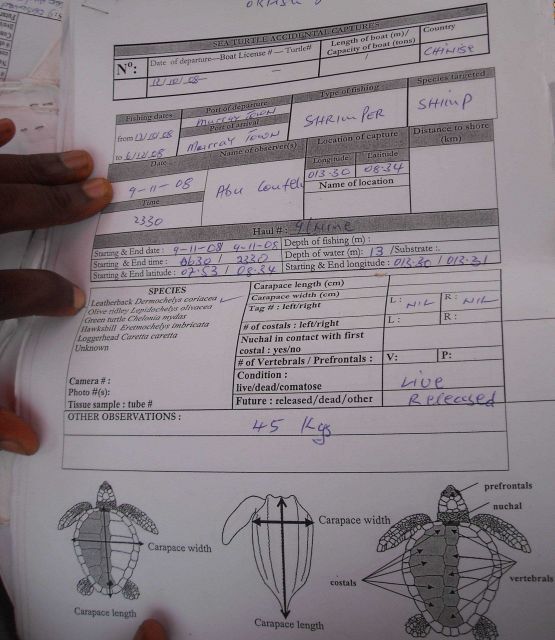 SEA TURTLE ACCIDENTAL CAPTURES
N°:
Date of departure—Boat License # — Turtle#
12/10/08 —
Length of boat (m)/
Capacity of boat (tons)
/
Country
CHINISE
Fishing dates
from 12/10/08
to 6/12/08
Port of departure
MURRAY TOWN
Port of arrival
Murray TOWN
Type of fishing
SHRIMPER
Species targeted
SHIMP
Date
9-11-08
Time
2330
Name of observer(s)
Abu
Location of capture
Longitude Latitude
013.30 08.34
Name of location
Distance to shore
(km)
Haul # : 9/Nine
Starting & End date : 9-11-08 9-11-08
Depth of fishing (m) :
Starting & End time : 0630 / 2330
Depth of water (m): 13 /Substrate :.
Starting & End latitude : 07.53 / 08.34
Starting & End longitude : 013.30 / 013.31
SPECIES
Leatherback Dermochelys coriacea
Olive ridley Lepidochelys olivacea
Green turtle Chelonia mydas
Hawksbill Eretmochelys imbricata
Loggerhead Caretta caretta
Unknown
Camera # :
Photo #(s):
Tissue sample : tube #
Carapace length (cm)
Carapace width (cm)
Tag # : left/right
L : NIL R : NIL
# of costals : left/right
L : R :
Nuchal in contact with first
costal : yes/no
# of Vertebrals / Prefrontals :
V: P:
Condition :
live/dead/comatose
Live
Future : released/dead/other
Released
OTHER OBSERVATIONS :
45 Kgs
Carapace width
Carapace length
Carapace width
Carapace length
prefrontals
nuchal
costals
vertebrals